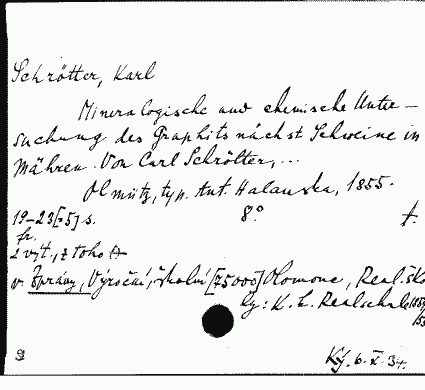 Schrötter, Karl
Mineralogische und chemische Unter-
suchung des Graphits nächst Schweine in
Mähren. Von Carl Schrötter,...
Olmütz, typ. Ant. Halauska, 1855.
19-23[=5] s. 8° t.
fr.
2 výt., z toho
v. Zprávy, Výroční, školní [75000] Olomouc, Real. ško
Ky: K. k. Realschule
9 Ký. 6. X. 34.